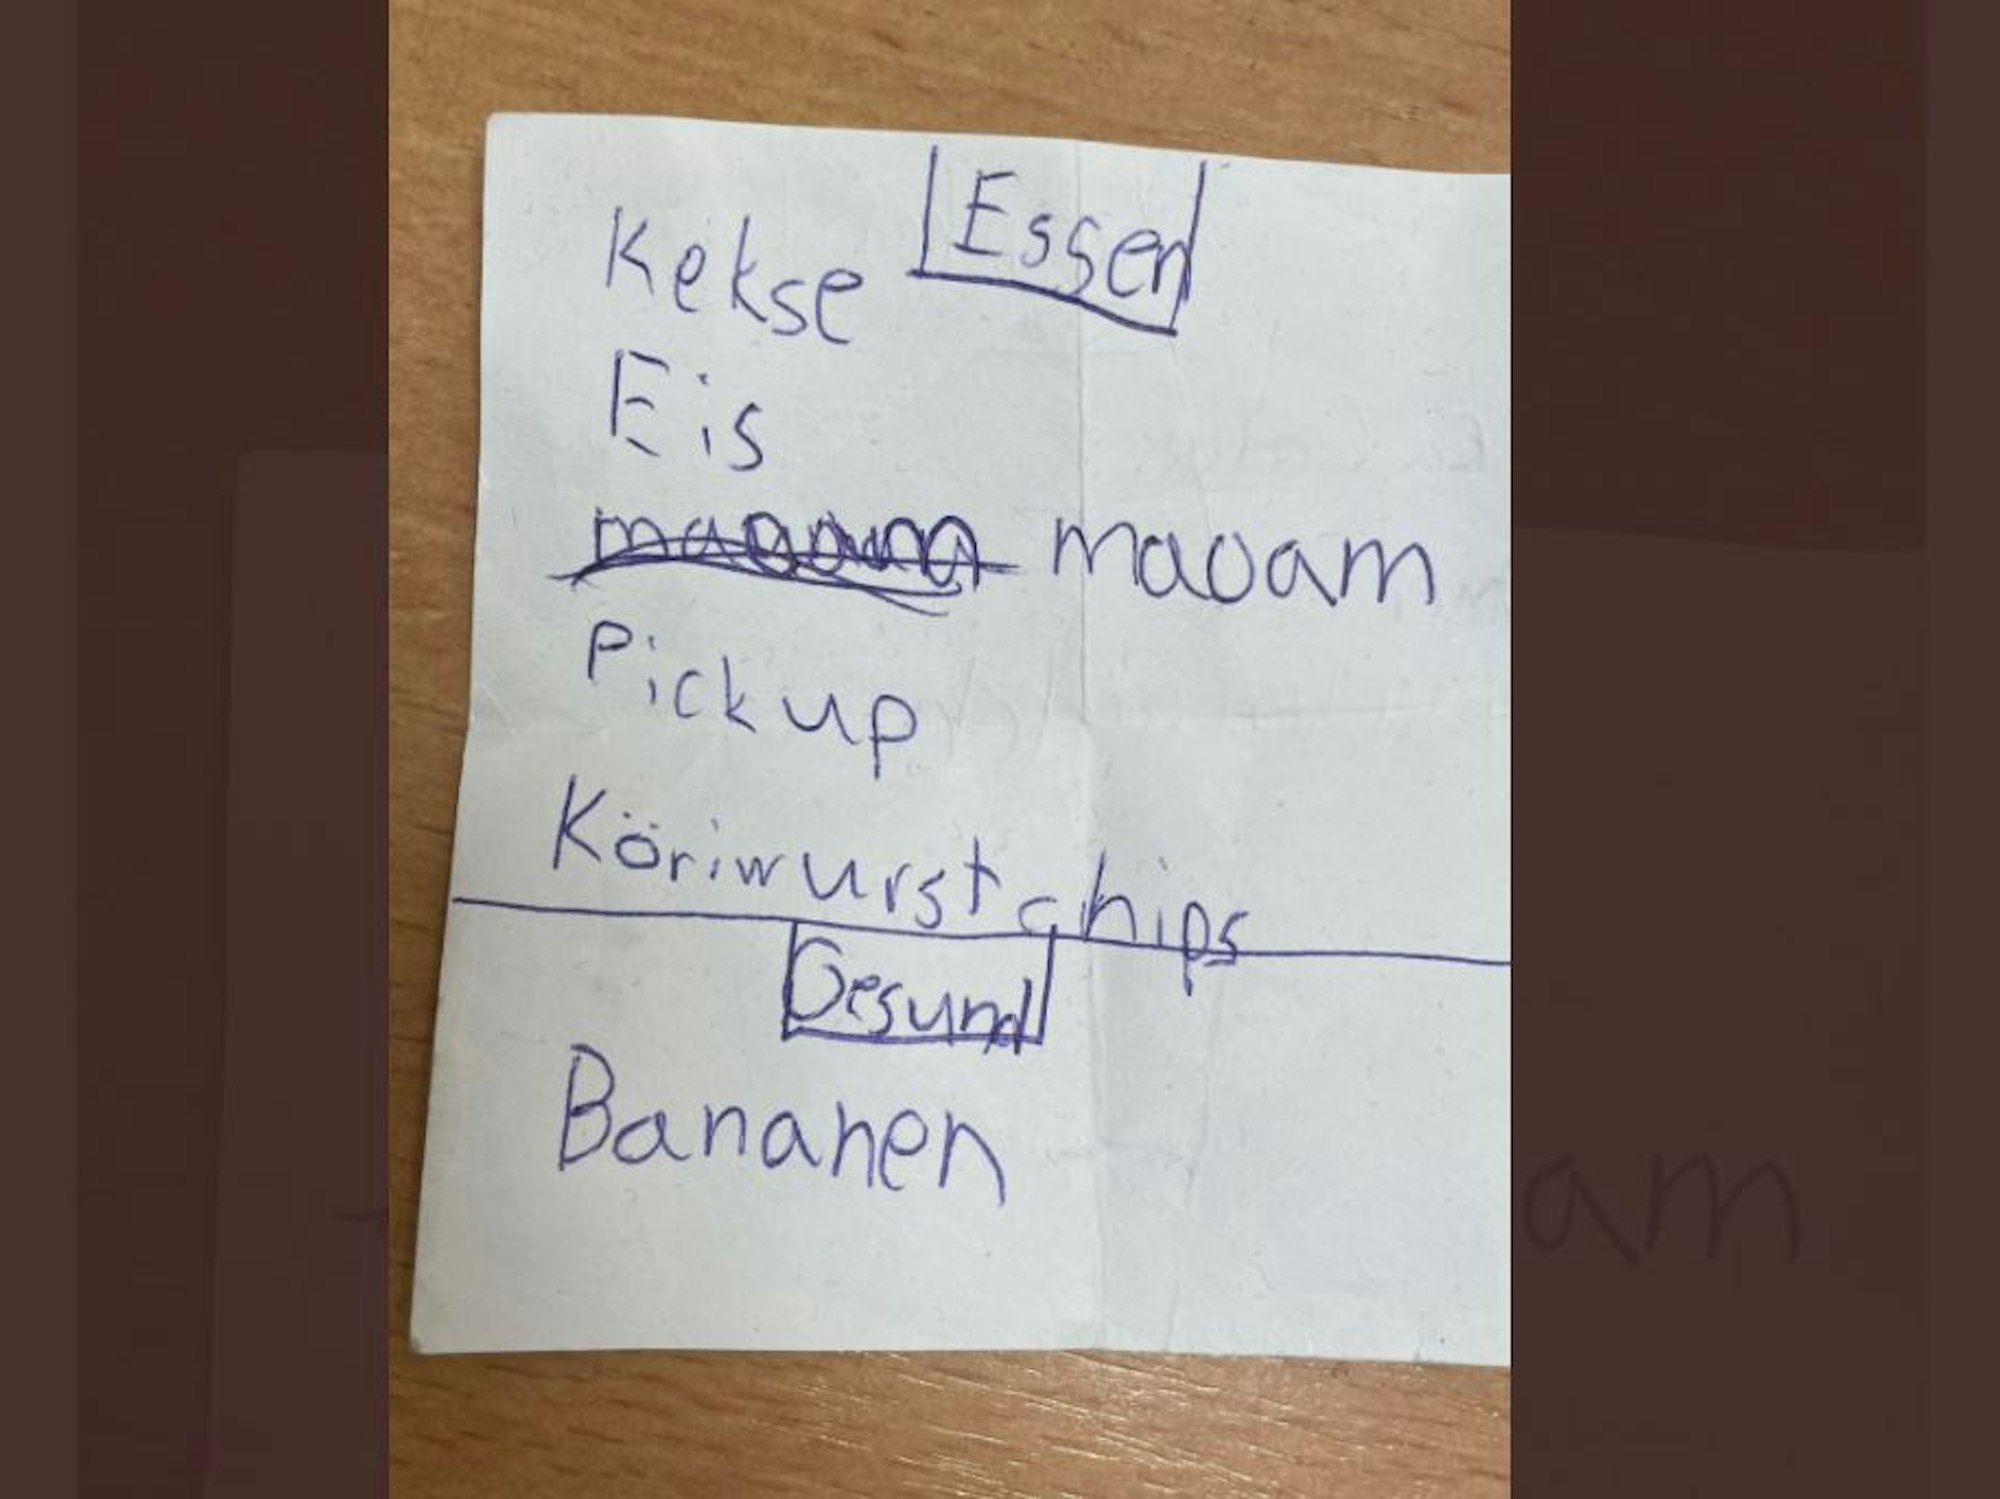 Essen
Kekse
Eis
maoam
Pickup
Köriwurstchips
Gesund
Bananen